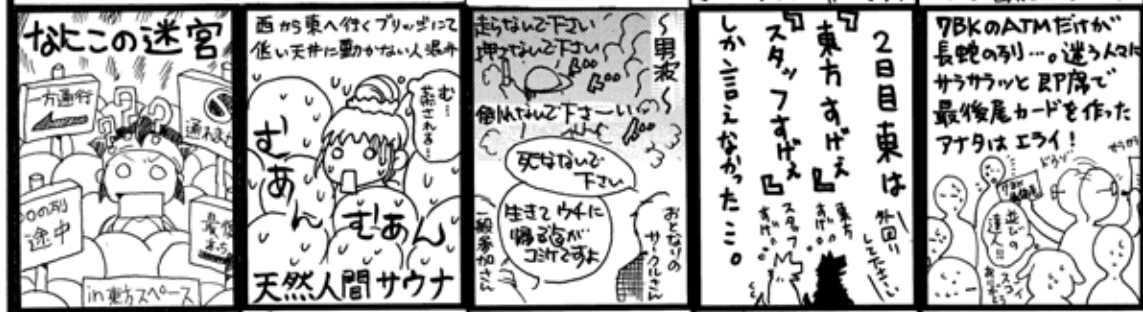 なにこの迷宮
一方通行
通れませ
○○の列
途中
最後
in東方スペース
西から東へ行くブリッヂにて
低い天井に動かない人混み
む…
蒸される…
むあん
むあん
天然人間サウナ
走らないで下さい
押さないで下さい
倒れないで下さーいい
〜男波〜
死なないで
下さい
生きてウチに
帰るまでが
コミケですよ
一般参加さん
おとなりの
サークルさん
2日目東は
『東方すげぇ』
『スタッフすげぇ』
しか言えなかった…。
外回り
して下さーい
東方
すげぇ
スタッフ
すげぇ
7BKのATMだけが
長蛇の列…。迷う人々に
サラサラッと即席で
最後尾カードを作った
アナタはエライ!
ドウゾ
7BK
最後尾
並びの
達人!!
スゴイ
ありがとう